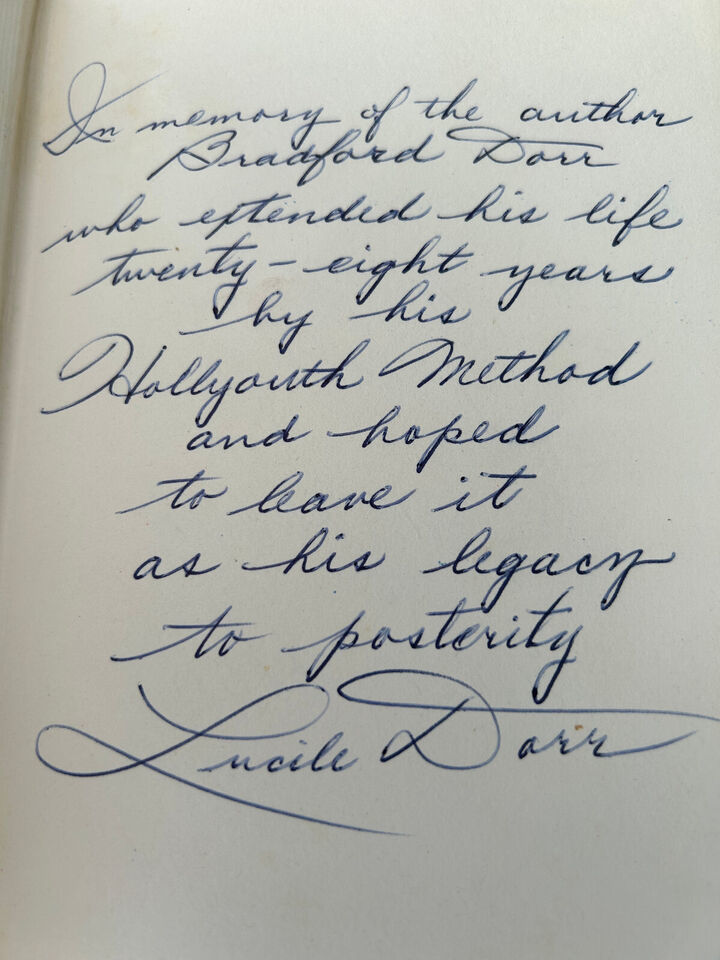 In memory of the author
Bradford Dorr
who extended his life
twenty-eight years
by his
Hollyouth Method
and hoped
to leave it
as his legacy
to posterity
Lucile Dorr